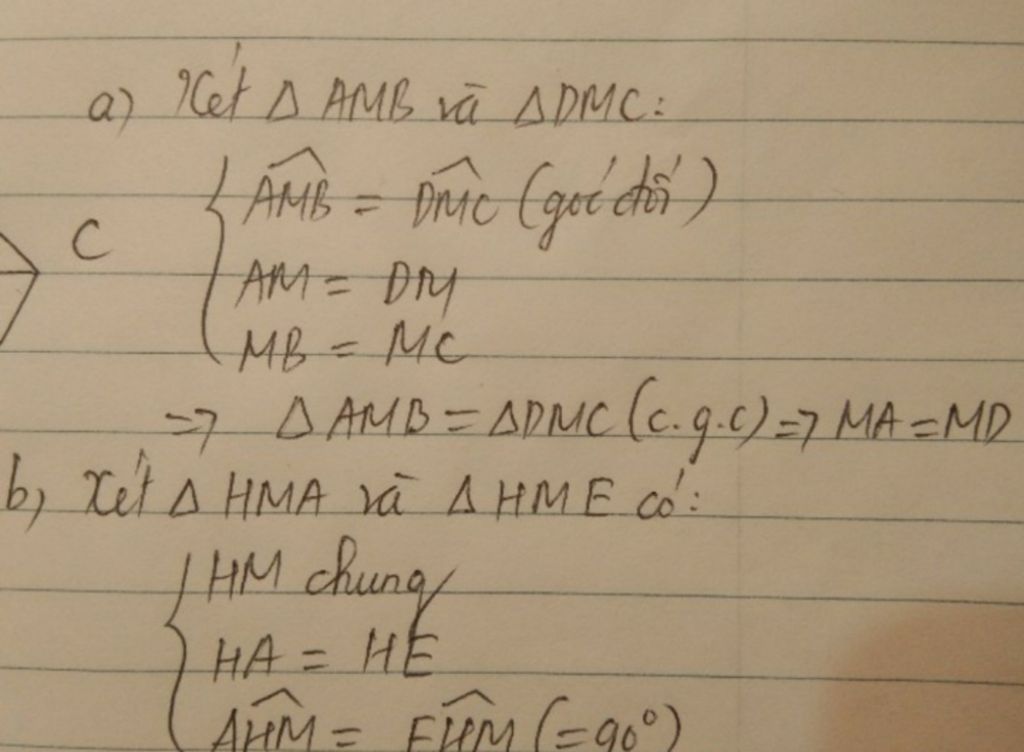 a) Xét Δ AMB và Δ DMC:
C
{ \widehat{AMB} = \widehat{DMC} (góc đối)
AM = DM
MB = MC
=> Δ AMB = Δ DMC (c.g.c) => MA = MD
b) Xét Δ HMA và Δ HME có:
{ HM chung
HA = HE
\widehat{AHM} = \widehat{EHM} (=90°)